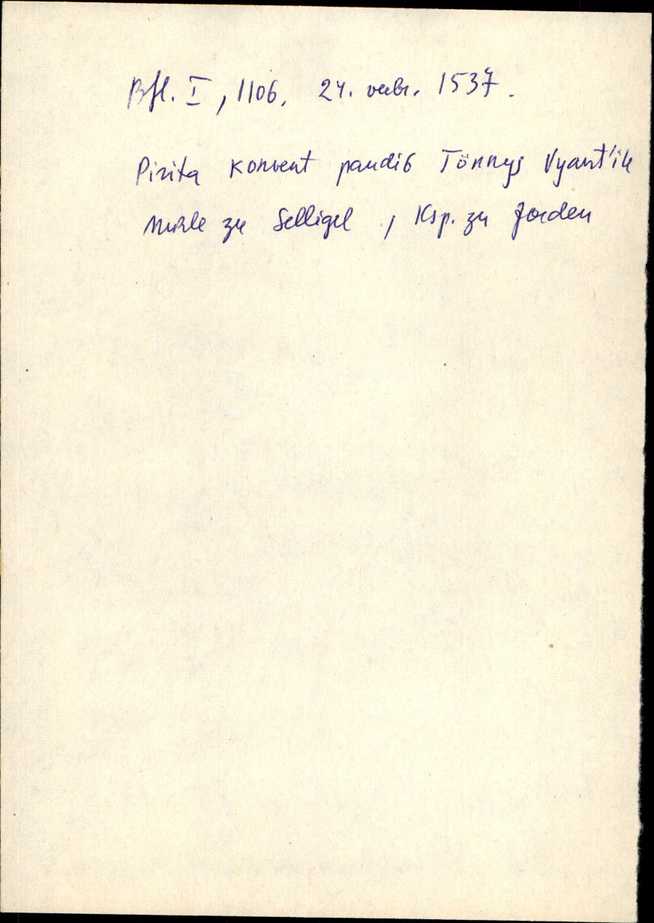 Bfl. I, 1106. 24. veebr. 1537.
Pirita konvent pandib Tönnys Vyant'ile
Mühle zu Selligel, Ksp. zu Jorden